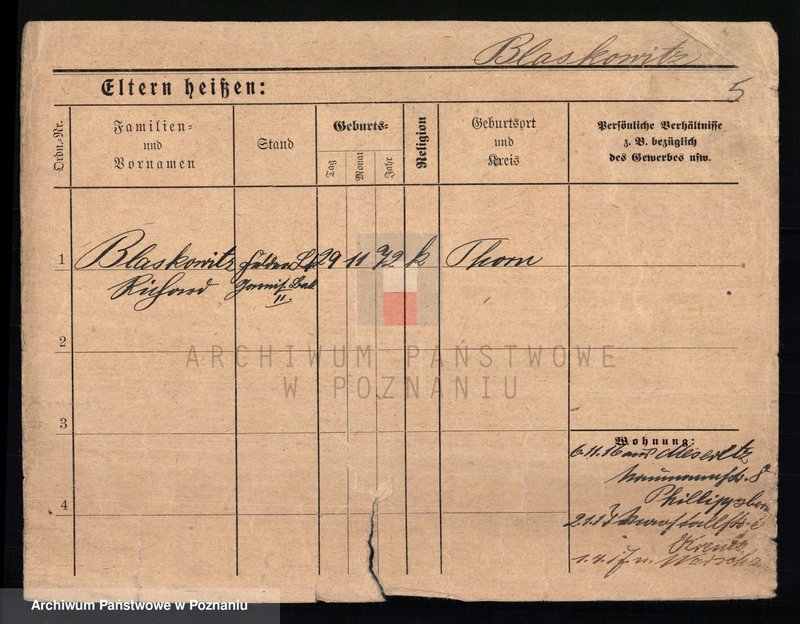 Blaskowitz
5
Eltern heißen:
Ordn.-Nr.
Familien=
und
Vornamen
Stand
Geburts=
Tag
Monat
Jahr
Religion
Geburtsort
und
Kreis
Persönliche Verhältnisse
z. B. bezüglich
des Gewerbes usw.
1
Blaskowitz
Richard
29 11 72 k
Thorn
II.
2
ARCHIWUM PAŃSTWOWE
W POZNANIU
3
Wohnung:
6.11.16 aus Meseritz
4
Archiwum Państwowe w Poznaniu